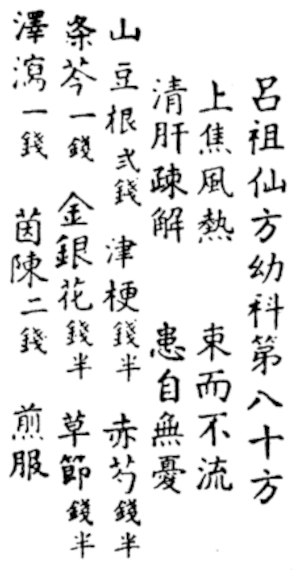 呂祖仙方幼科第八十方
上焦風熱 東而不流
清肝疎解 患自無憂
山豆根弍錢 津梗錢半 赤芍錢半
条芩一錢 金銀花錢半 草節錢半
澤瀉一錢 茵陳二錢 煎服